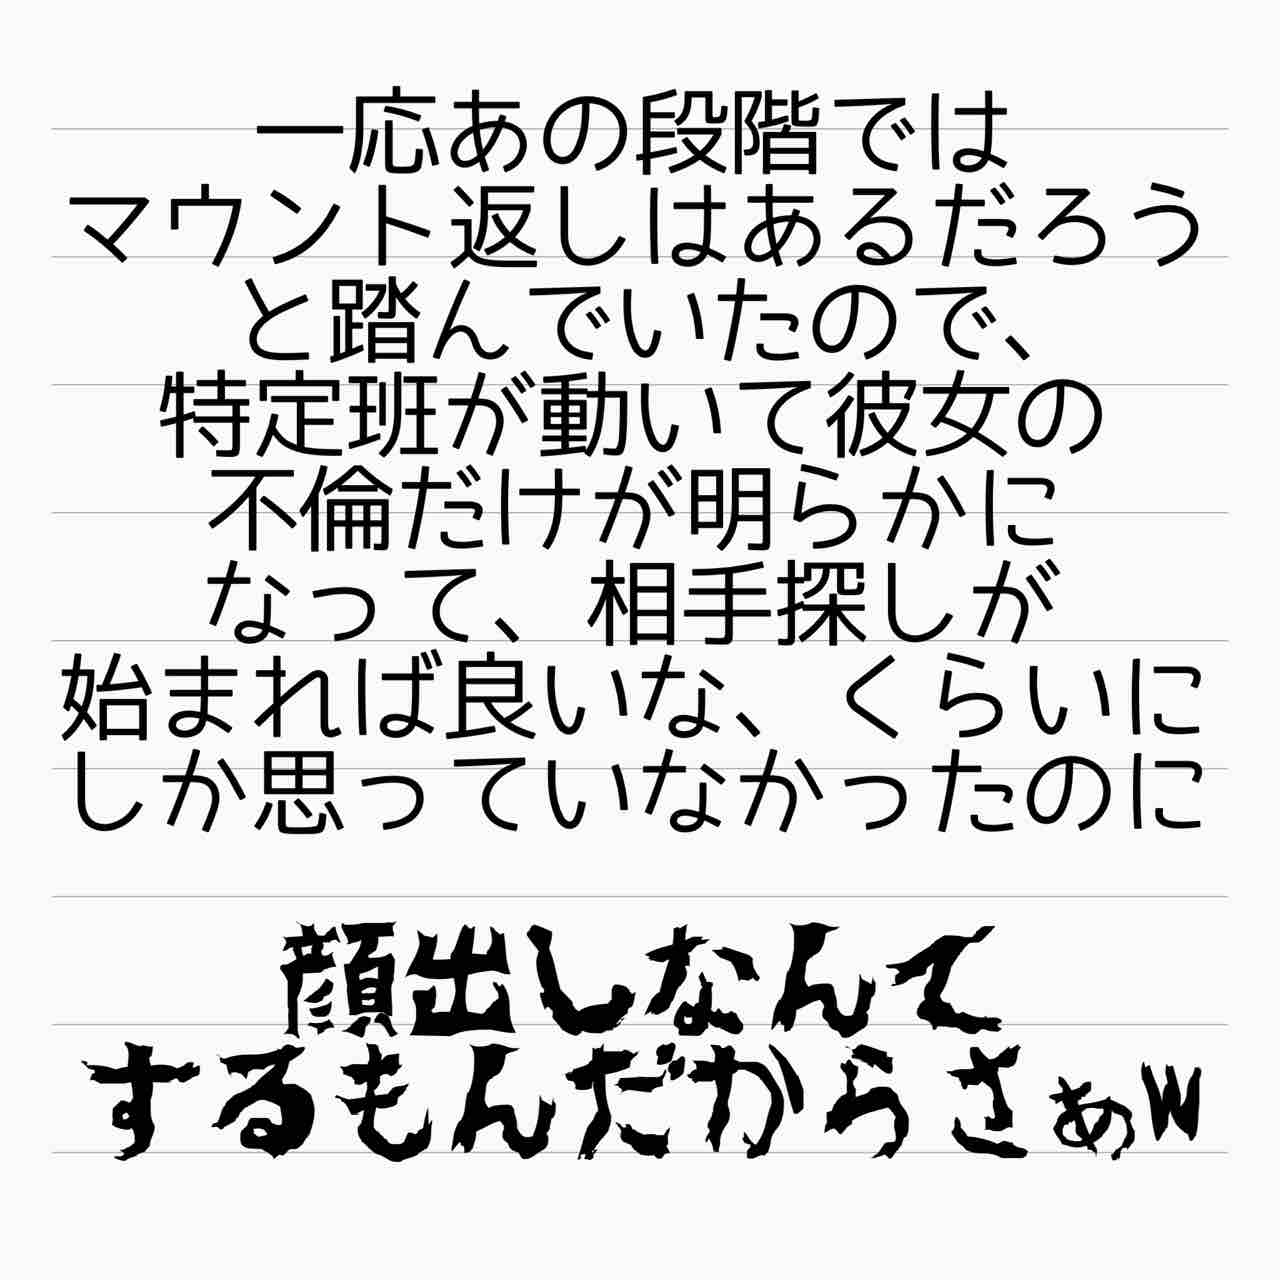 一応あの段階では
マウント返しはあるだろう
と踏んでいたので、
特定班が動いて彼女の
不倫だけが明らかに
なって、相手探しが
始まれば良いな、くらいに
しか思っていなかったのに
顔出しなんて
するもんだからさぁw